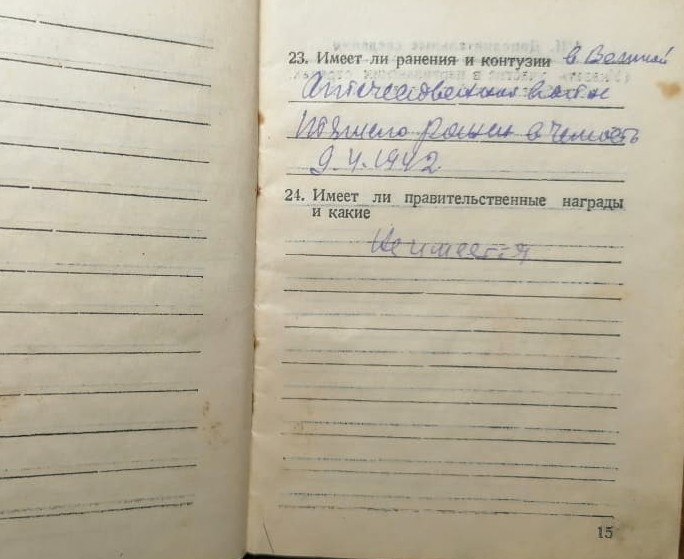 23. Имеет ли ранения и контузии в Великой
Отечественная война
тяжело ранен в челюсть
9.4.1942
24. Имеет ли правительственные награды
и какие
Не имеется
15